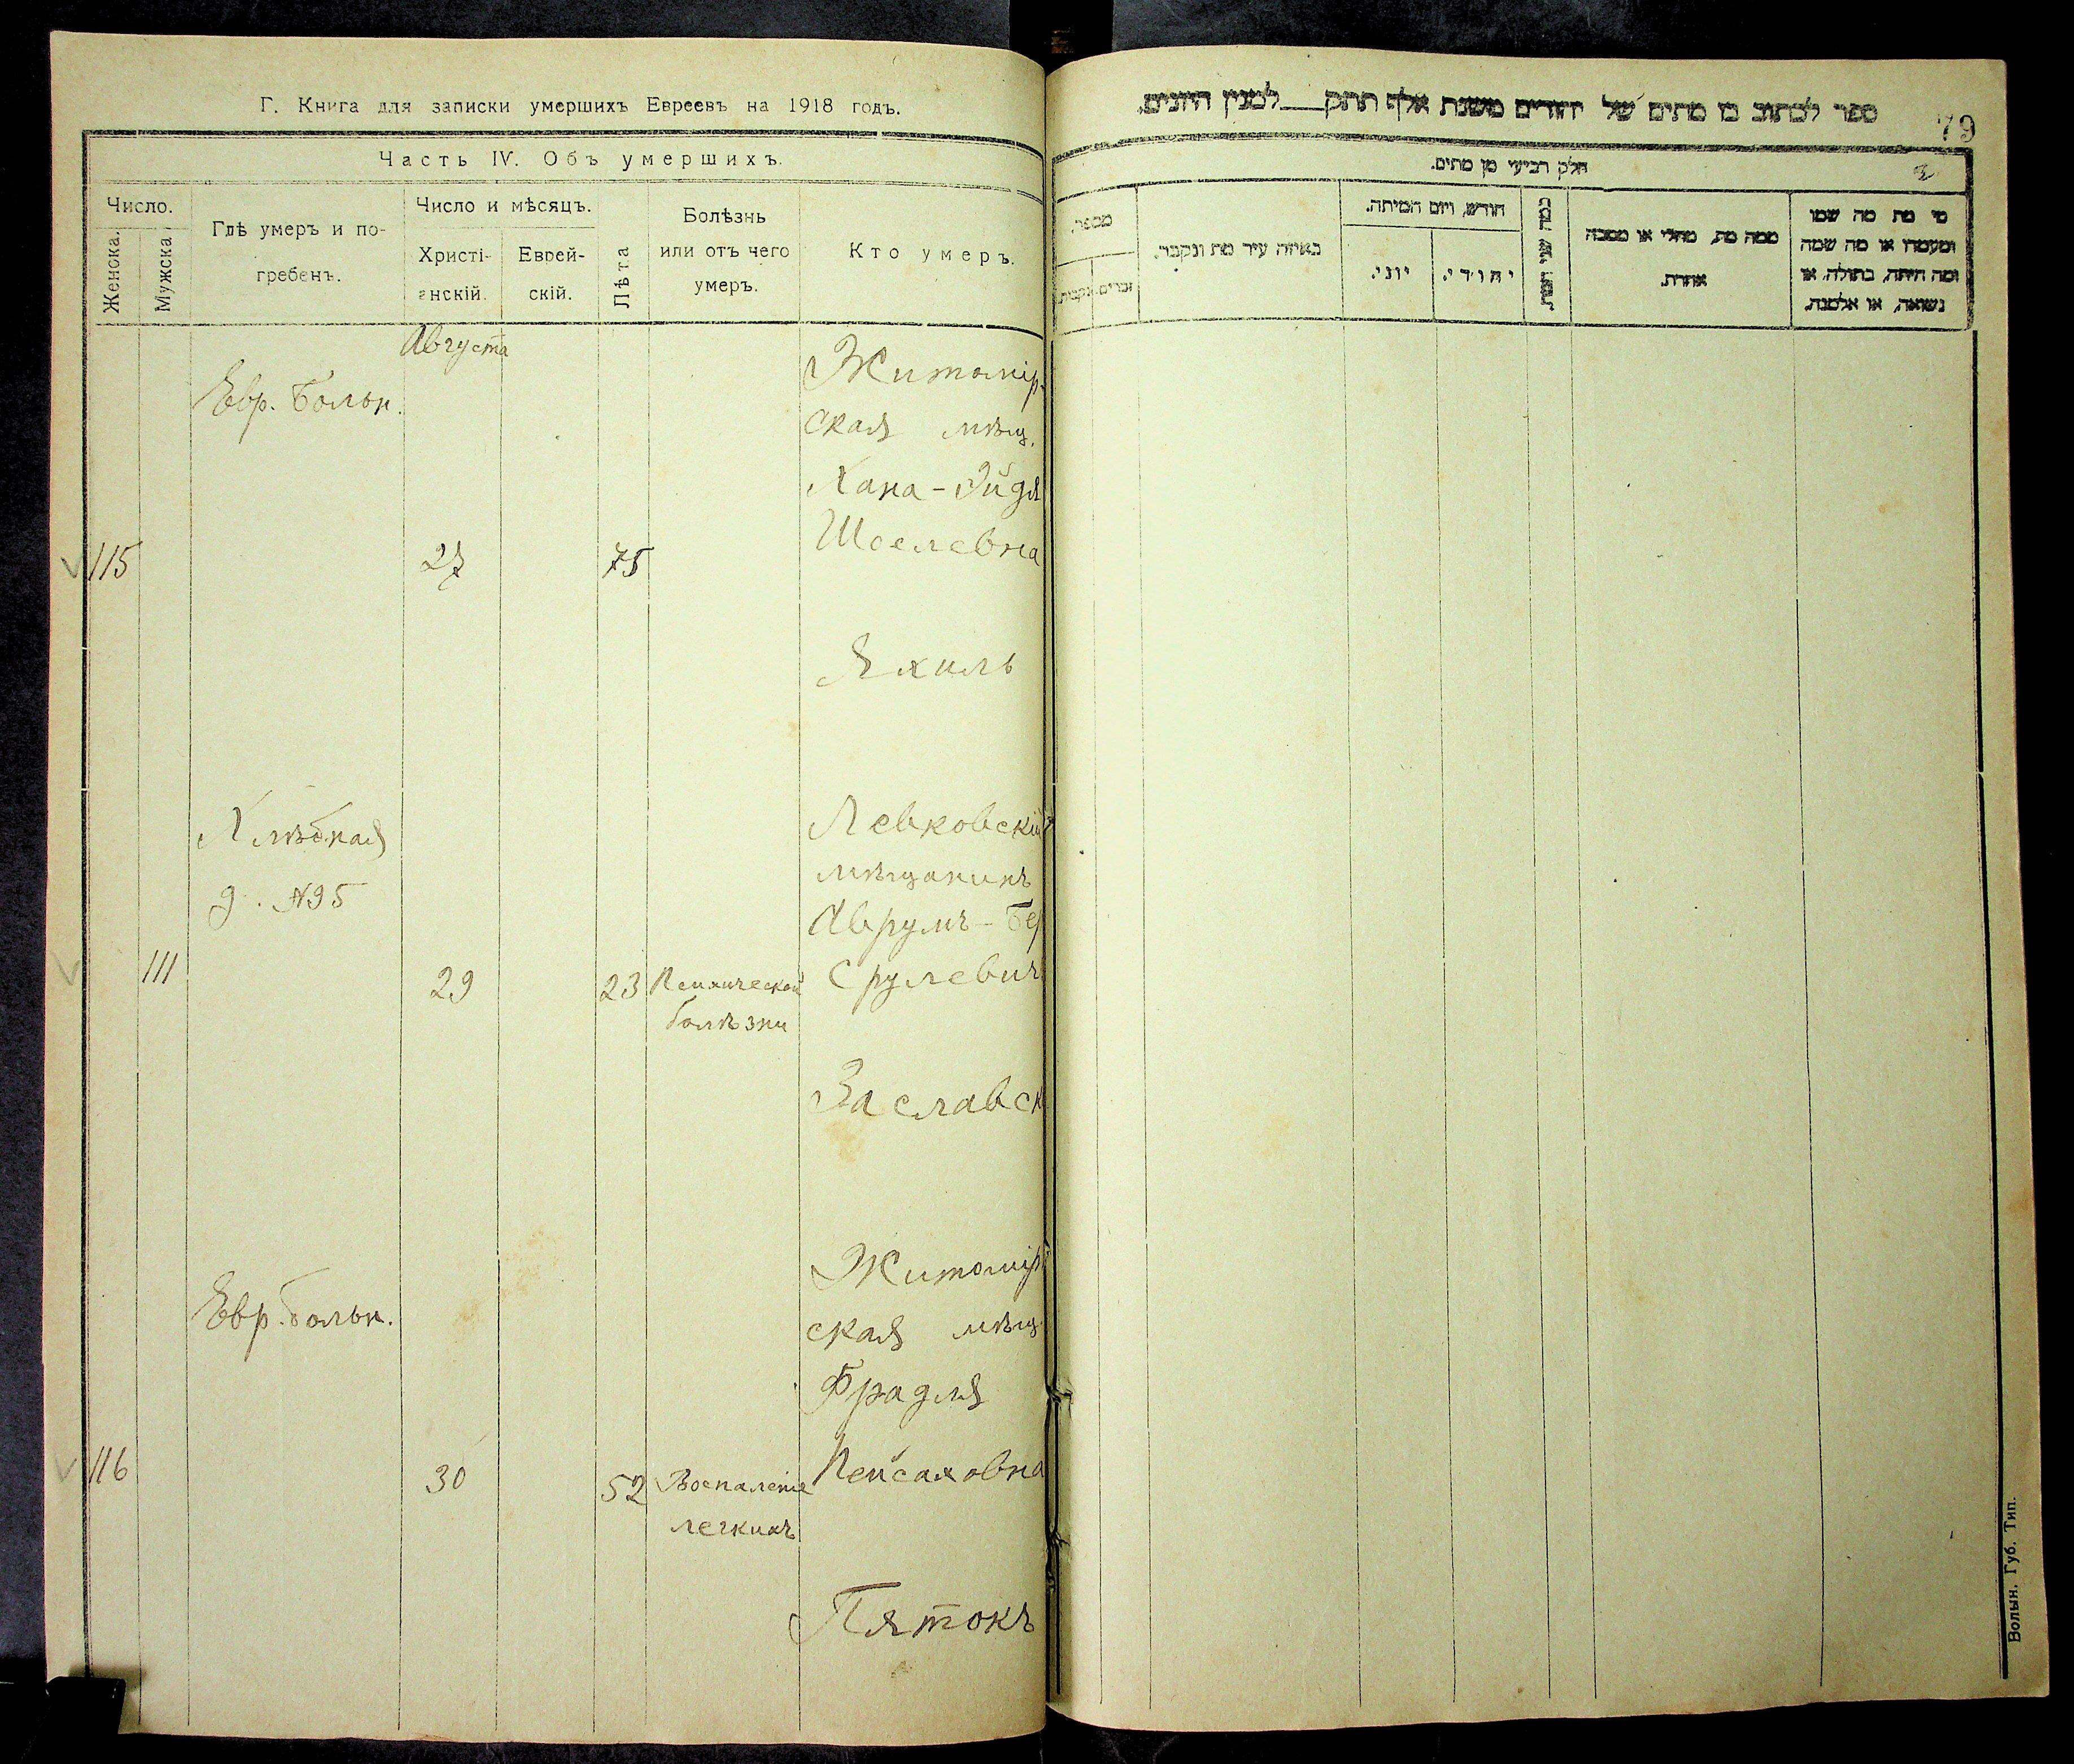 Г. Книга для записки умершихъ Евреевъ на 1918 годъ.
Часть IV. Объ умершихъ.
Число.
Женска.
Мужска.
Гдѣ умеръ и по-
гребенъ.
Число и мѣсяцъ.
Христі-
анскій.
Еврей-
скій.
Лѣта
Болѣзнь
или отъ чего
умеръ.
Кто умеръ.
Августа
115
Евр. больн.
27
75
Житомір-
ская мѣщ.
Хана-Эйдя
Шселевна
Яхиль
111
Хлѣбная
д. №95
29
23
Психической
болѣзни
Левковскій
мѣщанинъ
Аврумъ-Бер
Срулевич
Заславск
116
Евр. больн.
30
52
Воспаленіе
легкихъ
Житомір
ская мѣщ.
Фрадля
Пейсаховна
Пятокъ
ספר לכתוב בו מתים של יהודים משנת אלף תתק__למנין היונים.
79
חלק רביעי מן מתים.
מי מת מה שמו
ומעמדו או מה שמה
ומה היתה, בתולה, או
נשואה, או אלמנה.
ממה מת, מחלי או מסבה
אחרת.
כמה שני חיותו.
חודש, ויום המיתה.
יהודי.
יוני.
באיזה עיר מת ונקבר.
מספר.
זכרים.
נקבות.
Волын. Губ. Тип.